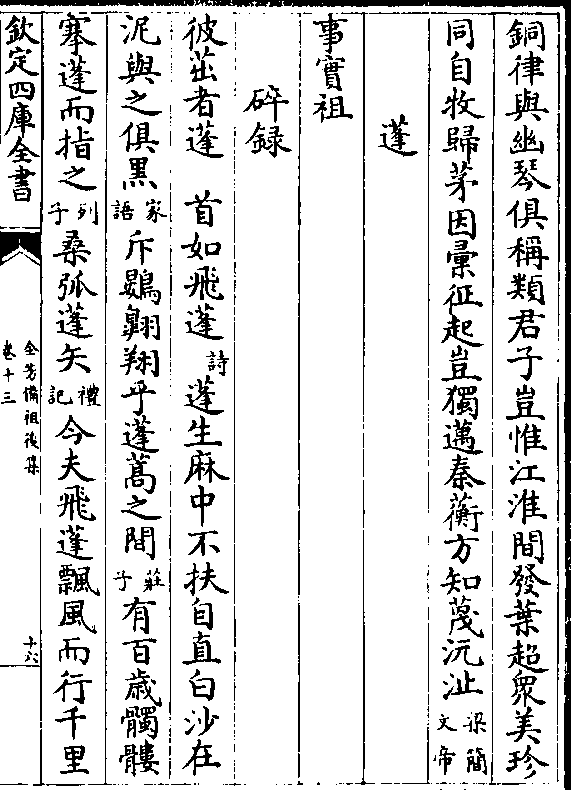 銅律與幽琴俱稱類君子豈惟江淮間發葉超衆美珍
同自牧歸茅因彚征起豈獨邁秦蘅方知蔑沅沚梁簡文帝
蓬
事實祖
碎録
彼茁者蓬 首如飛蓬詩蓬生麻中不扶自直白沙在
泥與之俱黑家語斥鷃翺翔乎蓬蒿之間莊子有百歳髑髏
搴蓬而指之列子桑弧蓬矢禮記今夫飛蓬飄風而行千里
欽定四庫全書
全芳備祖後集
卷十三
十六